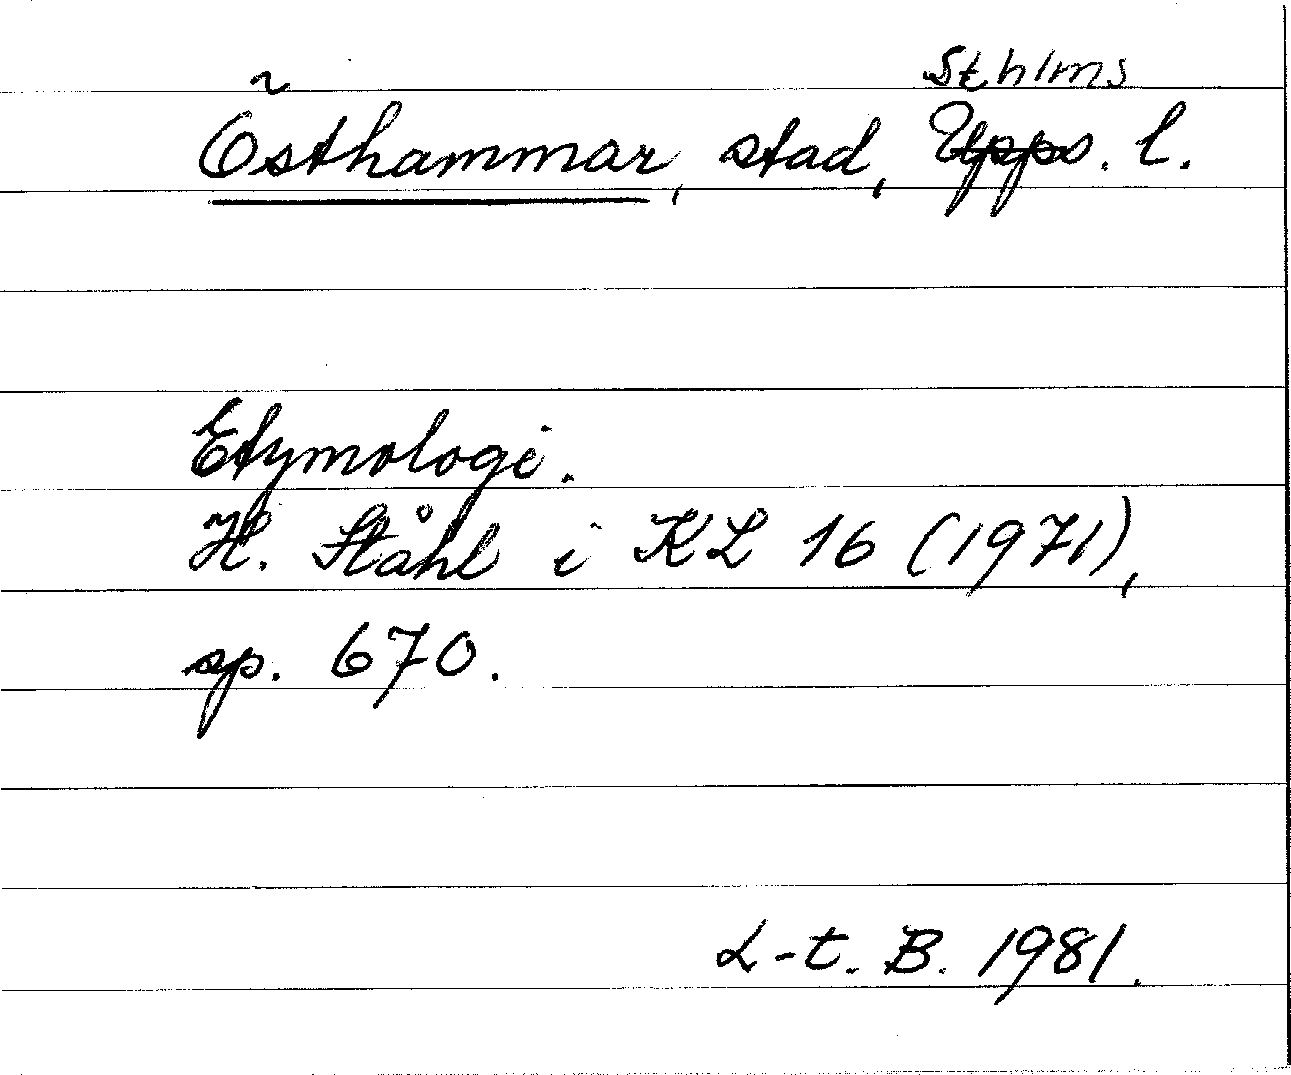 Sthlms
Östhammar, stad, Upps. l.
Etymologi.
H. Ståhl i KL 16 (1971),
sp. 670.
L-t. B. 1981.